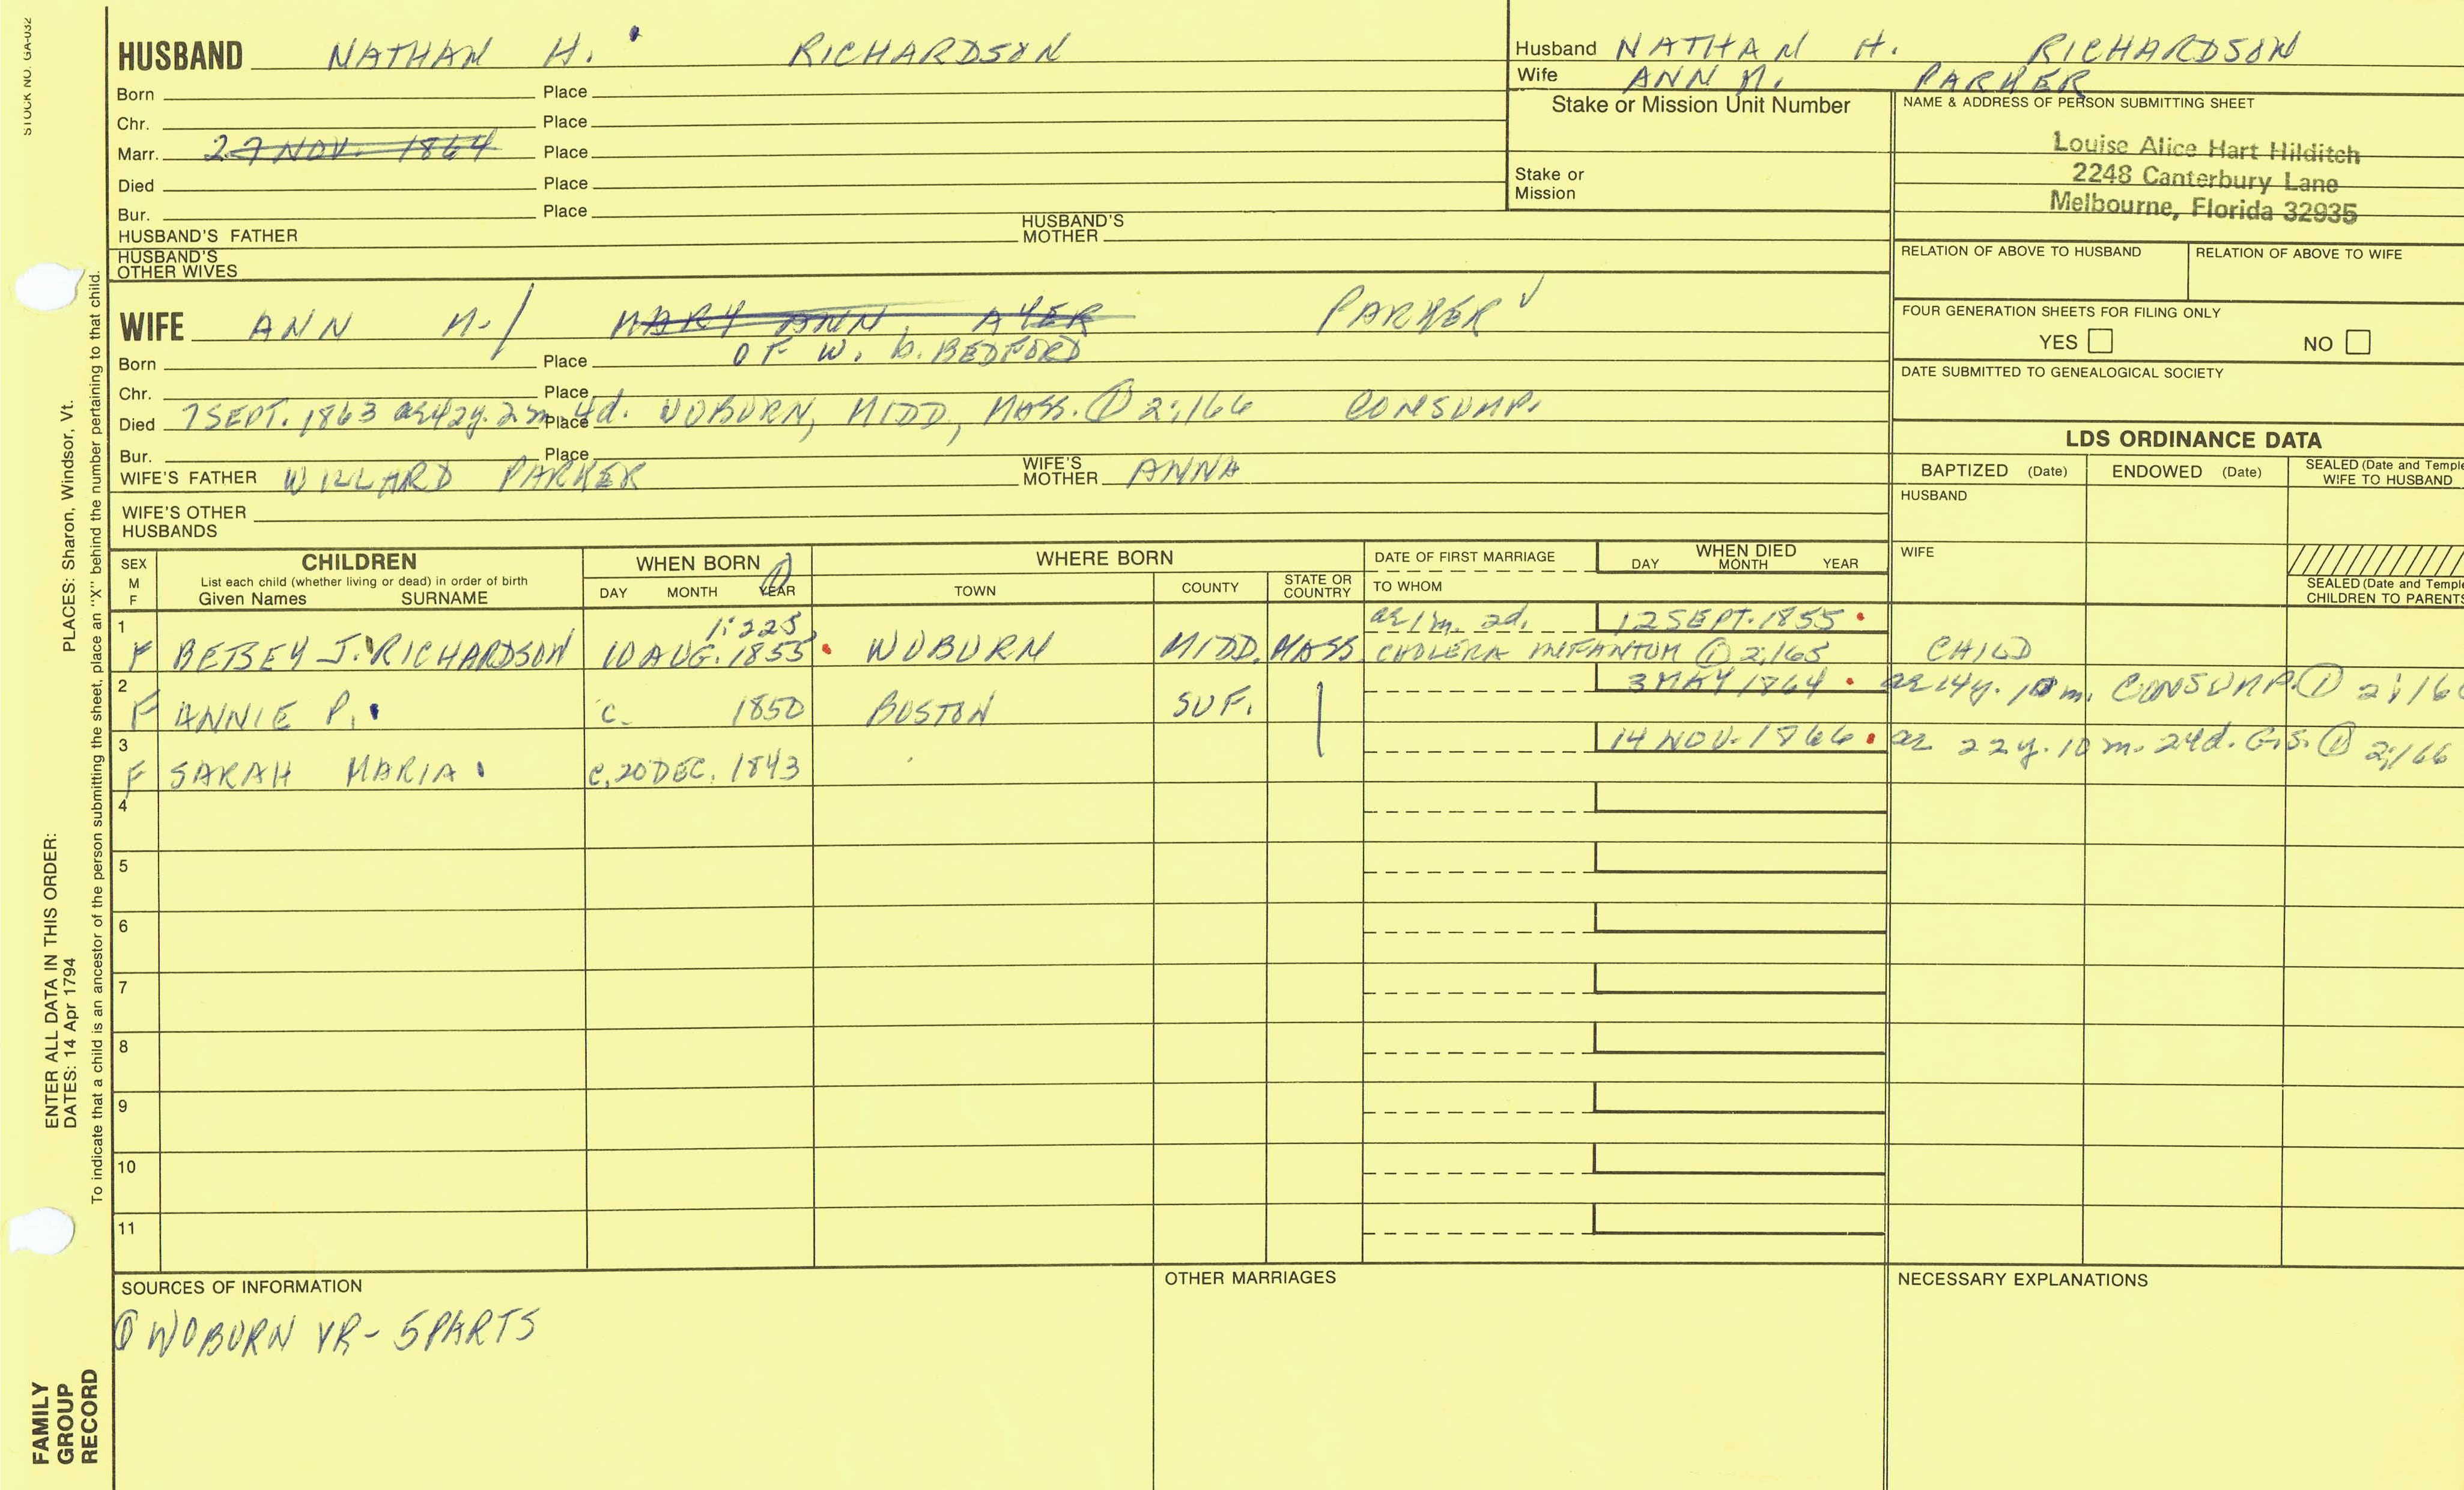 STOCK NO. GA-032
HUSBAND NATHAN H. RICHARDSON
Born Place
Chr. Place
Marr. 27 NOV. 1864 Place
Died Place
Bur. Place
HUSBAND'S FATHER HUSBAND'S MOTHER
HUSBAND'S OTHER WIVES
Husband NATHAN H. RICHARDSON
Wife ANN M. PARKER
Stake or Mission Unit Number
Stake or Mission
NAME & ADDRESS OF PERSON SUBMITTING SHEET
Louise Alice Hart Hilditch
2248 Canterbury Lane
Melbourne, Florida 32935
RELATION OF ABOVE TO HUSBAND RELATION OF ABOVE TO WIFE
FOUR GENERATION SHEETS FOR FILING ONLY
YES NO
DATE SUBMITTED TO GENEALOGICAL SOCIETY
WIFE ANN M. / MARY ANN AYER PARKER
Born Place OF W. B. BEDFORD
Chr. Place
Died 7 SEPT. 1863 ae 42y. 2m. 4d. Place WOBURN, MIDD, MASS. ① 2:166 CONSUMP.
Bur. Place
WIFE'S FATHER WILLARD PARKER WIFE'S MOTHER ANNA
WIFE'S OTHER HUSBANDS
LDS ORDINANCE DATA
BAPTIZED (Date) ENDOWED (Date) SEALED (Date and Temple
WIFE TO HUSBAND
HUSBAND
WIFE
SEALED (Date and Temple
CHILDREN TO PARENTS
SEX M F
CHILDREN
List each child (whether living or dead) in order of birth
Given Names SURNAME
WHEN BORN ①
DAY MONTH YEAR
WHERE BORN
TOWN COUNTY STATE OR COUNTRY
DATE OF FIRST MARRIAGE
TO WHOM
WHEN DIED
DAY MONTH YEAR
1 1:223 ae 1m. 2d. 12 SEPT. 1855
F BETSEY J. RICHARDSON 10 AUG. 1855 WOBURN MIDD. MASS. CHOLERA INFANTUM ① 2:165 CHILD
2 3 MAY 1864 ae 14y. 10m. CONSUMP. ① 2:16
F ANNIE P. c. 1850 BOSTON SUF.
3 14 NOV. 1866 ae 22y. 10m. 24d. G.S. ① 2:166
F SARAH MARIA c. 20 DEC. 1843
4
5
6
7
8
9
10
11
SOURCES OF INFORMATION
① WOBURN VR - 5 PARTS
OTHER MARRIAGES
NECESSARY EXPLANATIONS
ENTER ALL DATA IN THIS ORDER:
DATES: 14 Apr 1794 PLACES: Sharon, Windsor, Vt.
To indicate that a child is an ancestor of the person submitting the sheet, place an "X" behind the number pertaining to that child.
FAMILY
GROUP
RECORD